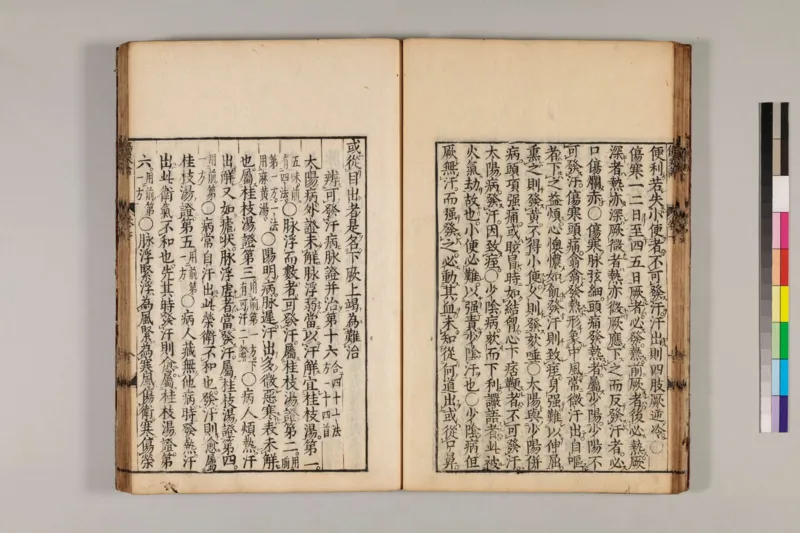 便利若失小便者不可發汗汗出則四肢厥逆冷○
傷寒一二日至四五日厥者必發熱前厥者後必熱厥
深者熱亦深厥微者熱亦微厥應下之而反發汗者必
口傷爛赤○傷寒脉弦細頭痛發熱者屬少陽少陽不
可發汗傷寒頭痛翕翕發熱形象中風常微汗出自嘔
者下之益煩心懊憹如飢發汗則致痓身强難以伸屈
熏之則發黃不得小便久則發欬唾○太陽與少陽併
病頭項强痛或眩冒時如結胷心下痞鞕者不可發汗
太陽病發汗因致痓○少陰病欬而下利讝語者此被
火氣劫故也小便必難以强責少陰汗也○少陰病但
厥無汗而强發之必動其血未知從何道出或從口鼻
或從目出者是名下厥上竭為難治
辨可發汗病脉證并治第十六合四十一法方一十四首
太陽病外證未解脉浮弱當以汗解宜桂枝湯第一
五味前有四法○脉浮而數者可發汗屬桂枝湯證第二用前
第一方一法用麻黃湯○陽明病脉遲汗出多微惡寒表未解
也屬桂枝湯證第三用前第一方下有可汗二證○病人煩熱汗
出解又如瘧狀脉浮虛者當發汗屬桂枝湯證第四
用前第一方○病常自汗出此榮衛不和也發汗則愈屬
桂枝湯證第五用前第一方○病人藏無他病時發熱汗
出此衛氣不和也先其時發汗則愈屬桂枝湯證第
六用前第一方○脉浮緊浮為風緊為寒風傷衛寒傷榮